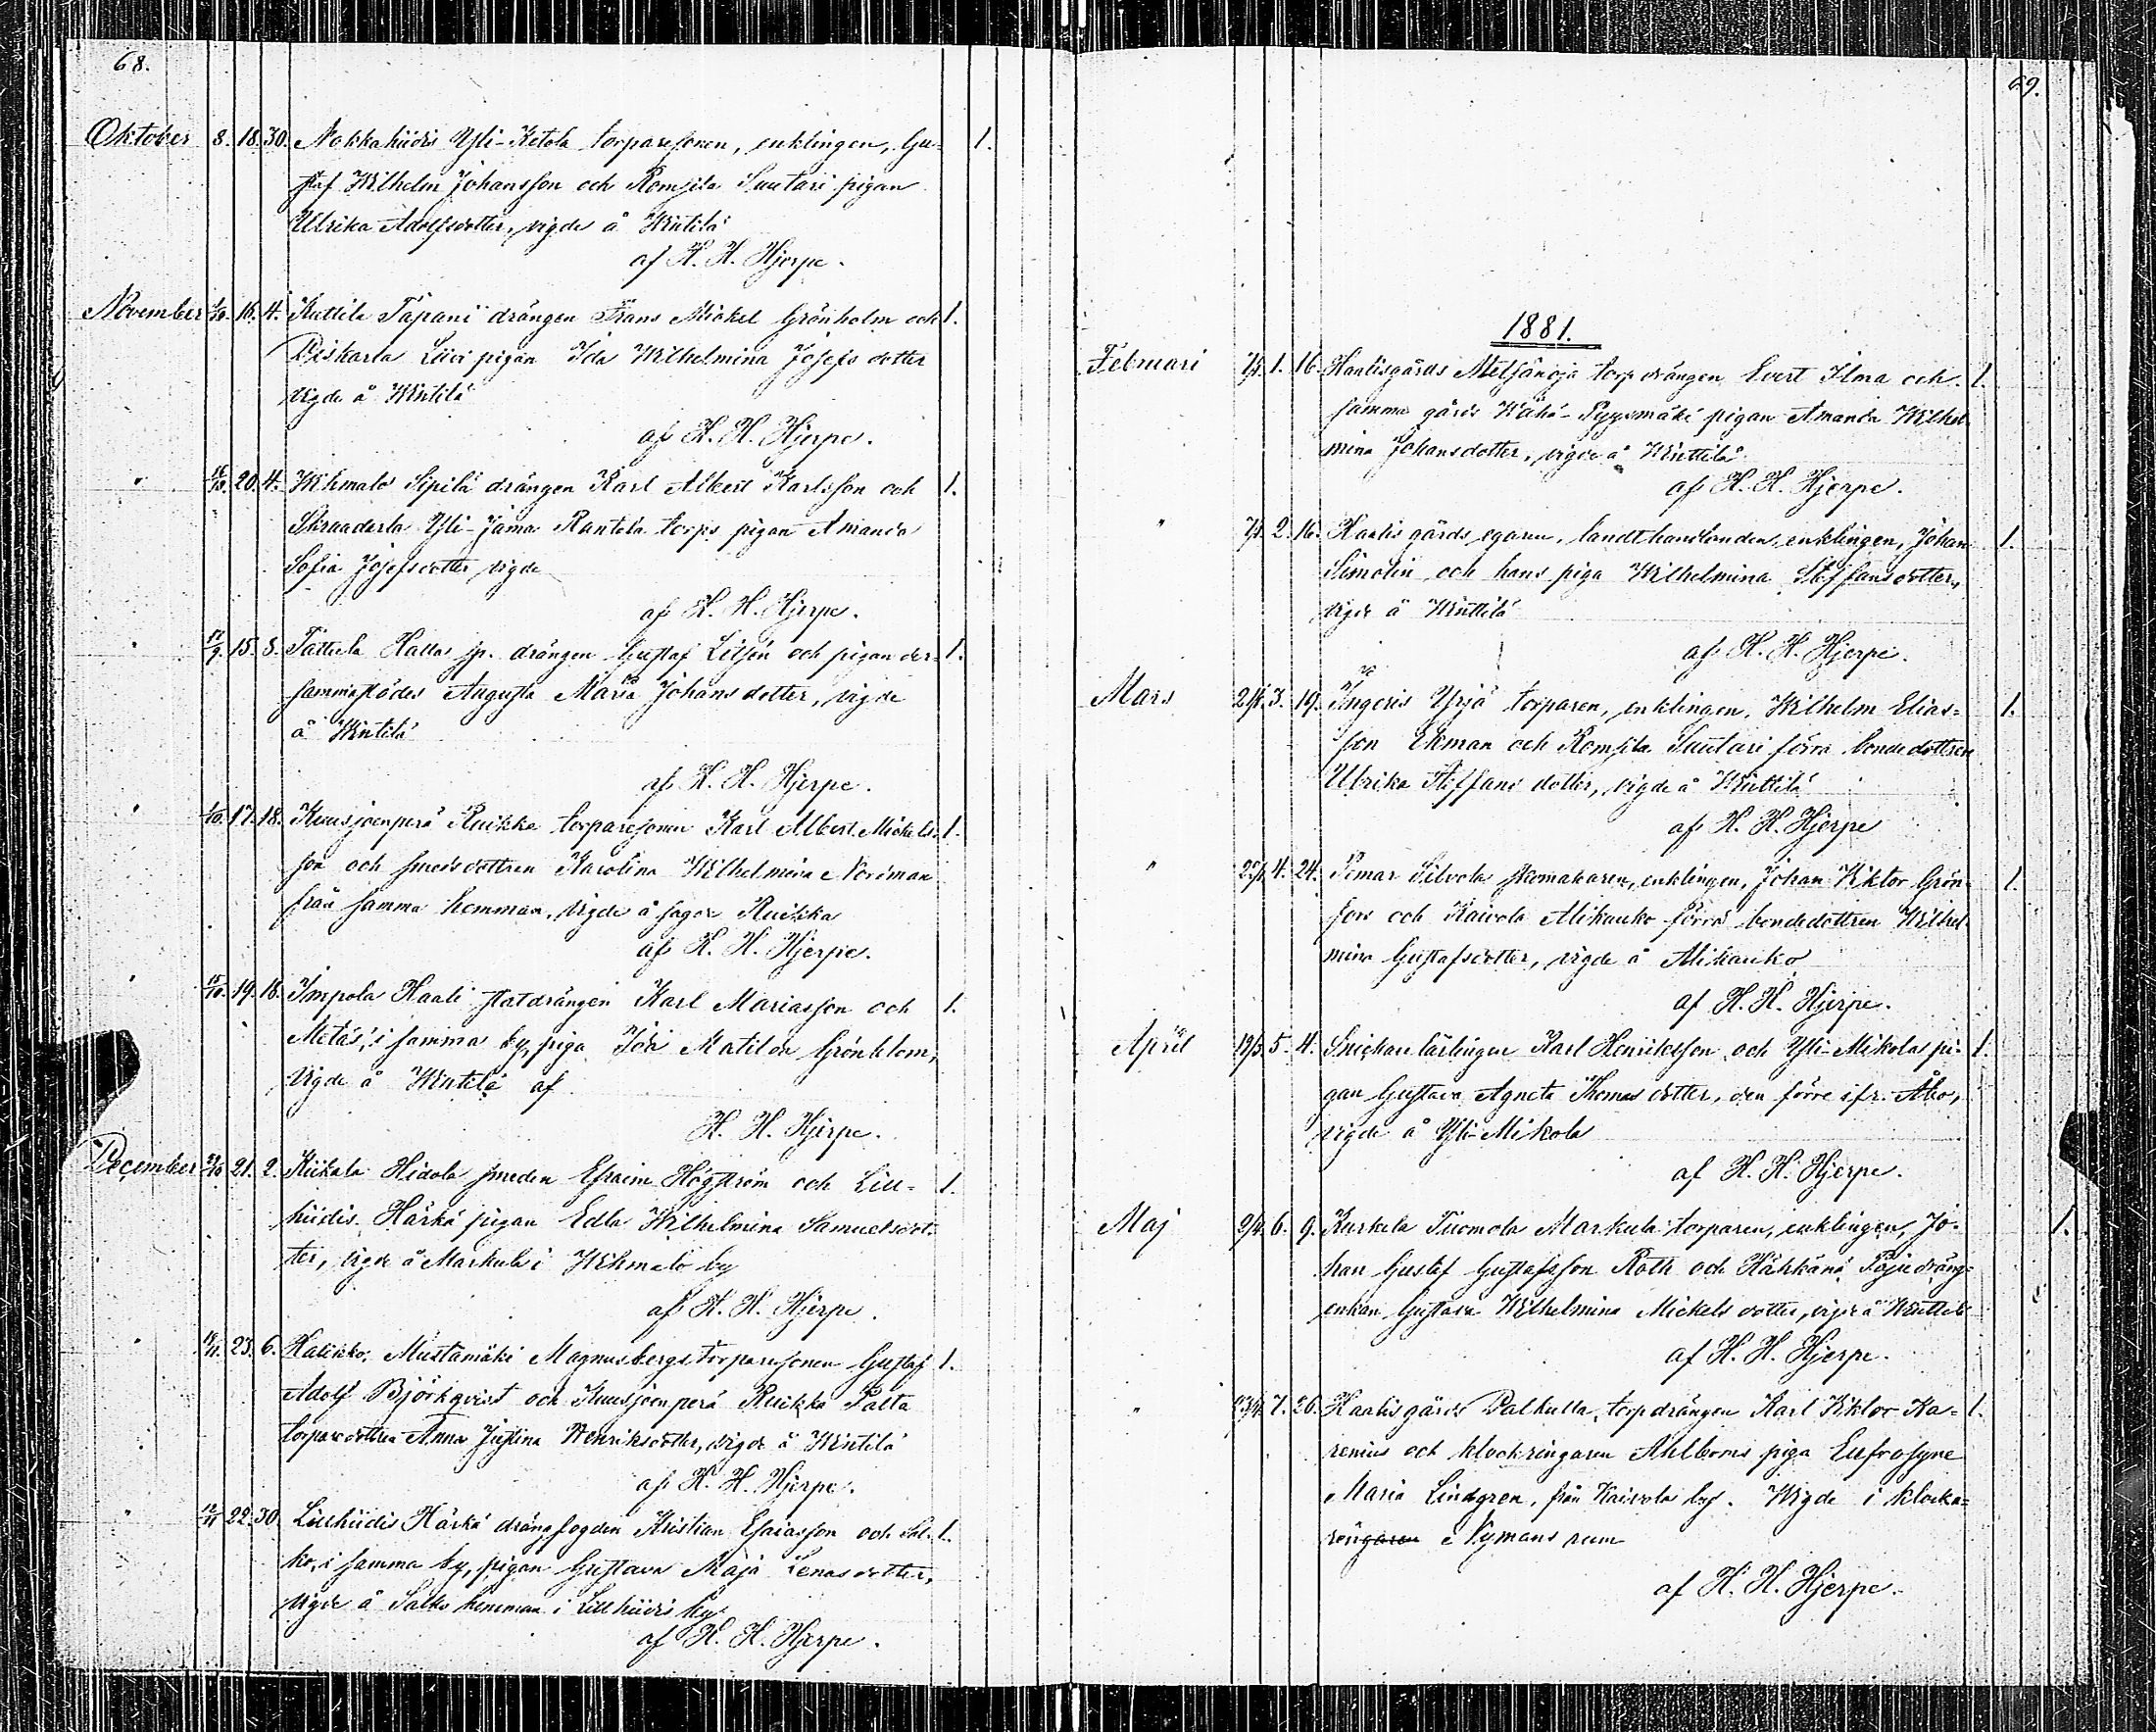 68.
Oktober 8. 18. 30. Nokkahiidis Yli-Ketola torparesonen, enklingen, Gu- 1.
staf Wilhelm Johansson och Romsila Suutari pigan
Ulrika Adolfsdotter, vigde å Wintilä
af H. H. Hjerpe.
November 1/10. 16. 4. Kuttila Tapani drängen Frans Mickel Grönholm och 1.
Piskarla Liipi pigan Ida Wilhelmina Josefsdotter
vigde å Wintilä
af H. H. Hjerpe.
" 16/10. 20. 4. Wihmalo Sipilä drängen Karl Albert Karlsson och 1.
Skraaderla Yli-Jama Rantala torps pigan Amanda
Sofia Josefsdotter vigde
af H. H. Hjerpe.
" 17/9. 15. 8. Tatterla Hallas sp. drängen Gustaf Litsén och pigan der- 1.
sammastädes Augusta Maria Johansdotter, vigde
å Wintilä
af H. H. Hjerpe.
" 1/10. 17. 18. Kuusjoenperä Ruikka torparesonen Karl Albert Mickels- 1.
son och smedsdottren Karolina Wilhelmina Nordman
från samma hemman, vigde å sagde Ruikka
af H. H. Hjerpe.
" 15/10. 19. 18. Impola Haali statdrängen Karl Mariasson och 1.
Metäs, i samma by, piga Ida Matilda Grönblom,
vigde å Wintilä af
H. H. Hjerpe.
December 21. 2. Kiikala Hidola smeden Efraim Högström och Lill- 1.
hiidis Härkä pigan Edla Wilhelmina Samuelsdot-
ter, vigde å Markula i Wihmalo by
af H. H. Hjerpe.
" 19/11. 23. 6. Halikko, Mustamäki Magnusbergs torparesonen Gustaf 1.
Adolf Björkqvist och Kuusjoenperä Ruikka Palta
torparedottren Anna Justina Henriksdotter, vigde å Wintilä
af H. H. Hjerpe.
" 12/11 22. 30. Lillhiidis Härkä drängfogden Kristian Esaiasson och Sal- 1.
ko, i samma by, pigan Gustava Maja Lenasdotter,
vigde å Salko hemman i Lillhiidis by
af H. H. Hjerpe.
69.
1881.
Februari 7/1. 1. 16. Haalisgårds Metsänoja torpdrängen Evert Ilma och 1.
samma gårds Wähä-Pyysmäki pigan Amanda Wilhel-
mina Johansdotter, vigde å Winttilä
af H. H. Hjerpe.
" 7/1. 2. 16. Haalis gårds egaren, landthandlanden, enklingen, Johan 1.
Simolin och hans piga Wilhelmina Steffansdotter,
vigde å Winttilä
af H. H. Hjerpe.
Mars 3. 19. Ingeris Yrjä torparen, enklingen, Wilhelm Elias- 1.
son Ekman och Romsila Suutari förra bondedottren
Ulrika Steffans dotter, vigde å Winttilä
af H. H. Hjerpe
" 4. 24. Pemar Silvola skomakaren, enklingen, Johan Wiktor Grön- 1.
fors och Kaivola Alikauko förra bondedottren Wilhel-
mina Gustafsdotter, vigde å Alikauko
af H. H. Hjerpe.
April 19/3. 5. 4. Snickarlärlingen Karl Henriksson och Yli-Mikola pi- 1.
gan Gustava Agneta Thomasdotter, den förre ifr. Åbo,
vigde å Yli-Mikola
af H. H. Hjerpe.
Maj 9/4. 6. 9. Kurkela Tuomola Markula torparen, enklingen, Jo- 1.
han Gustaf Gustafsson Roth och Hähkänä Paju dräng-
enkan Gustava Wilhelmina Mickels dotter, vigde å Winttilä
af H. H. Hjerpe.
" 13/4. 7. 26. Haalisgårds Palkulla torpdrängen Karl Wiktor Ka- 1.
renius och klockringaren Ahlboms piga Eufrosyne
Maria Lindgren, från Kaivola by. Wigde i klocka-
ren Nymans rum
af H. H. Hjerpe.